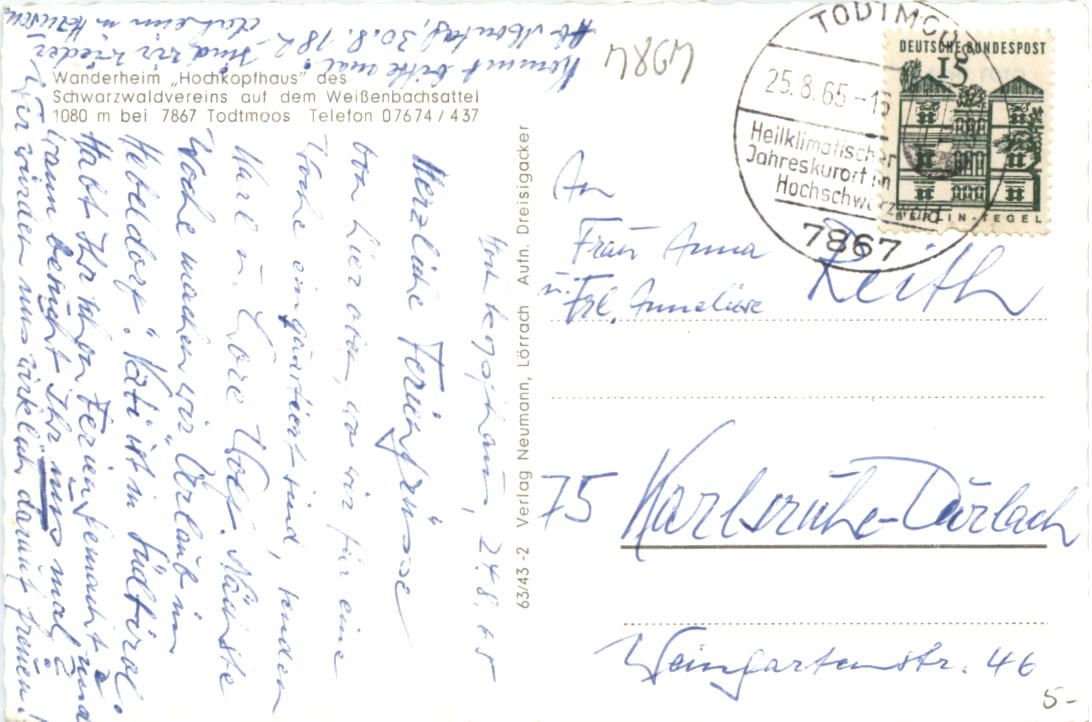 Wanderheim „Hochkopfhaus" des
Schwarzwaldvereins auf dem Weißenbachsattel
1080 m bei 7867 Todtmoos Telefon 07674/437
63/43-2 Verlag Neumann, Lörrach Aufn. Dreisigacker
TODTMOOS
25.8.65-16
Heilklimatischer
Jahreskurort im
Hochschwarzwald
7867
DEUTSCHE BUNDESPOST
15
BERLIN-TEGEL
Hochkopfhaus, 24.8.65
Herzliche Feriengrüsse
von hier oben, wo wir für eine
Woche einquartiert sind, senden
Karl u. Lore Wolf. Nächste
Woche machen wir „Urlaub im
Hebeldorf". Vati ist in Südtirol.
Habt Ihr schon Ferien gemacht und
wann besucht Ihr uns mal?
Wir würden uns wirklich darauf freuen!
Kommt bitte mal!
Ab Montag, 30.8. sind wir wieder
An
Frau Anna Reith
u. Frl. Anneliese
75 Karlsruhe-Durlach
Weingartenstr. 46
5-